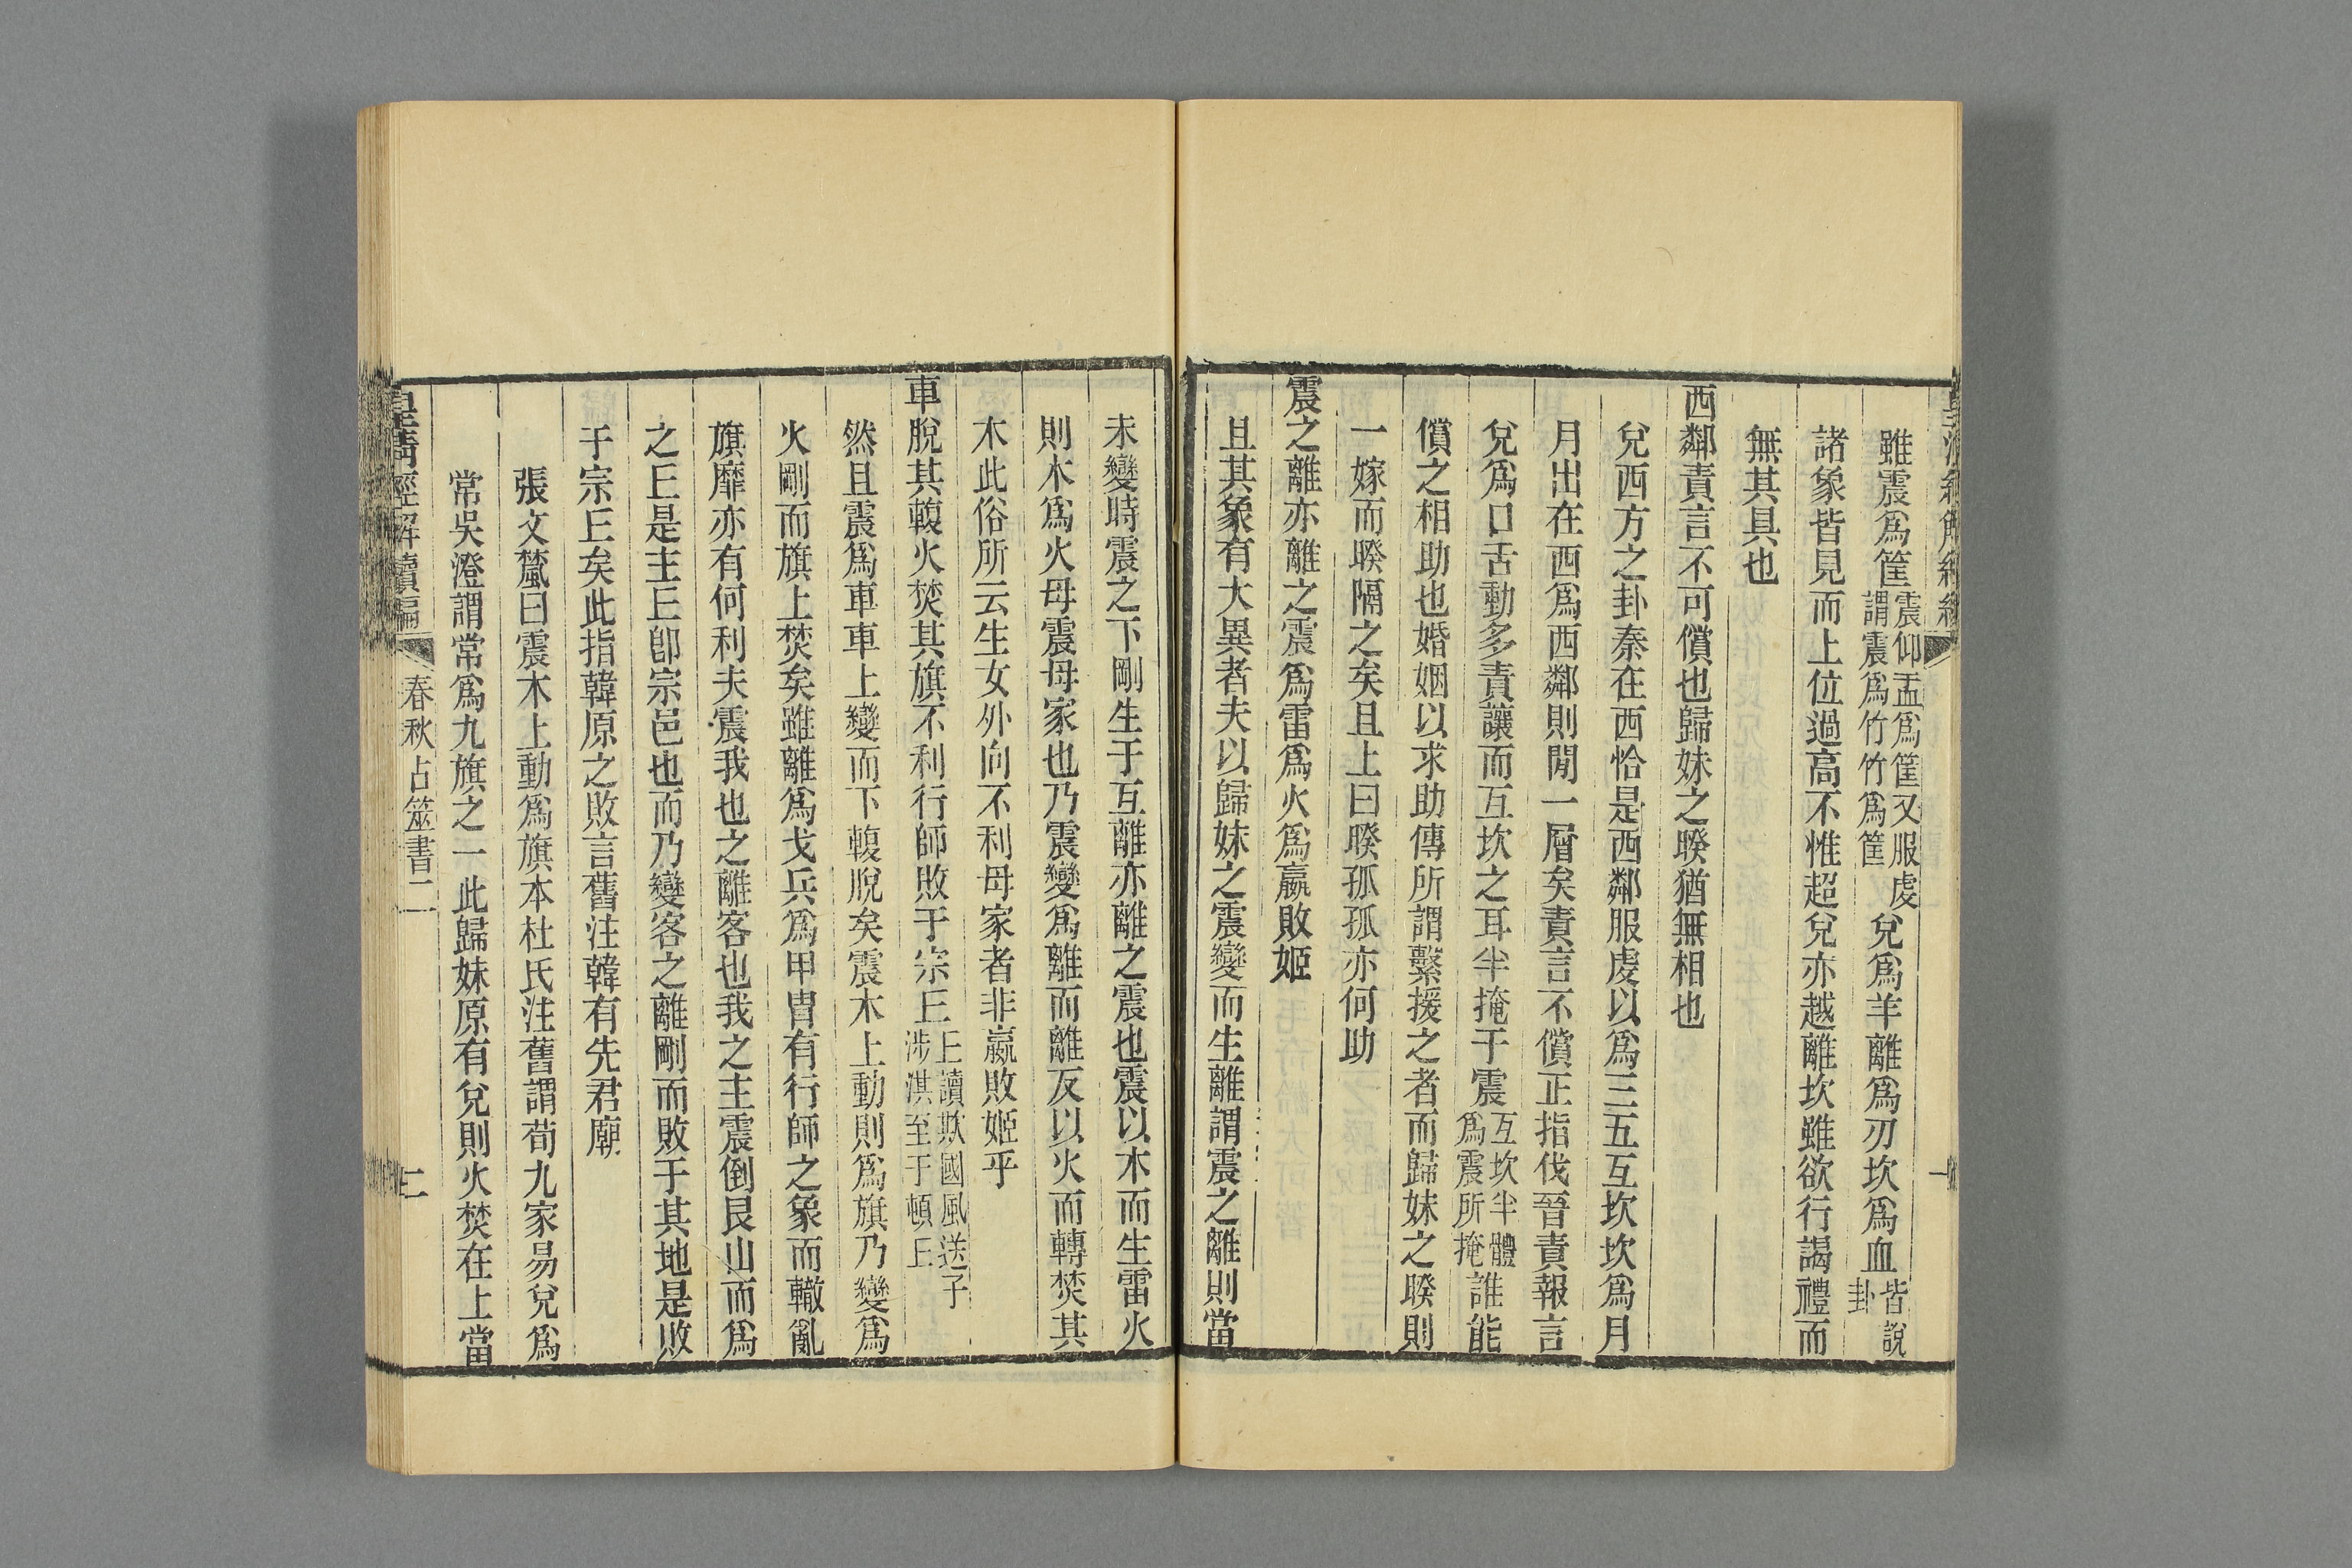 雖震爲筐震仰盂爲筐又服虔謂震爲竹竹爲筐兌爲羊離爲刃坎爲血皆說卦
諸象皆見而上位過高不惟超兌亦越離坎雖欲行謁禮而
無其具也
西鄰責言不可償也歸妹之睽猶無相也
兌西方之卦秦在西恰是西鄰服虔以爲三五互坎坎爲月
月出在西爲西鄰則閒一層矣責言不償正指伐晉責報言
兌爲口舌動多責讓而互坎之耳半掩于震互坎半體爲震所掩誰能
償之相助也婚姻以求助傳所謂繫援之者而歸妹之睽則
一嫁而睽隔之矣且上曰睽孤孤亦何助
震之離亦離之震爲雷爲火爲嬴敗姬
且其象有大異者夫以歸妹之震變而生離謂震之離則當
未變時震之下剛生于互離亦離之震也震以木而生雷火
則木爲火母震母家也乃震變爲離而離反以火而轉焚其
木此俗所云生女外向不利母家者非嬴敗姬乎
車脫其輹火焚其旗不利行師敗于宗丘丘讀欺國風送子涉淇至于頓丘
然且震爲車車上變而下輹脫矣震木上動則爲旗乃變爲
火剛而旗上焚矣雖離爲戈兵爲甲冑有行師之象而轍亂
旗靡亦有何利夫震我也之離客也我之主震倒艮山而爲
之丘是主丘卽宗邑也而乃變客之離剛而敗于其地是敗
于宗丘矣此指韓原之敗言舊注韓有先君廟
張文虪曰震木上動爲旗本杜氏注舊謂荀九家易兌爲
常吳澄謂常爲九旗之一此歸妹原有兌則火焚在上當
皇淸經解續編
春秋占筮書二
二